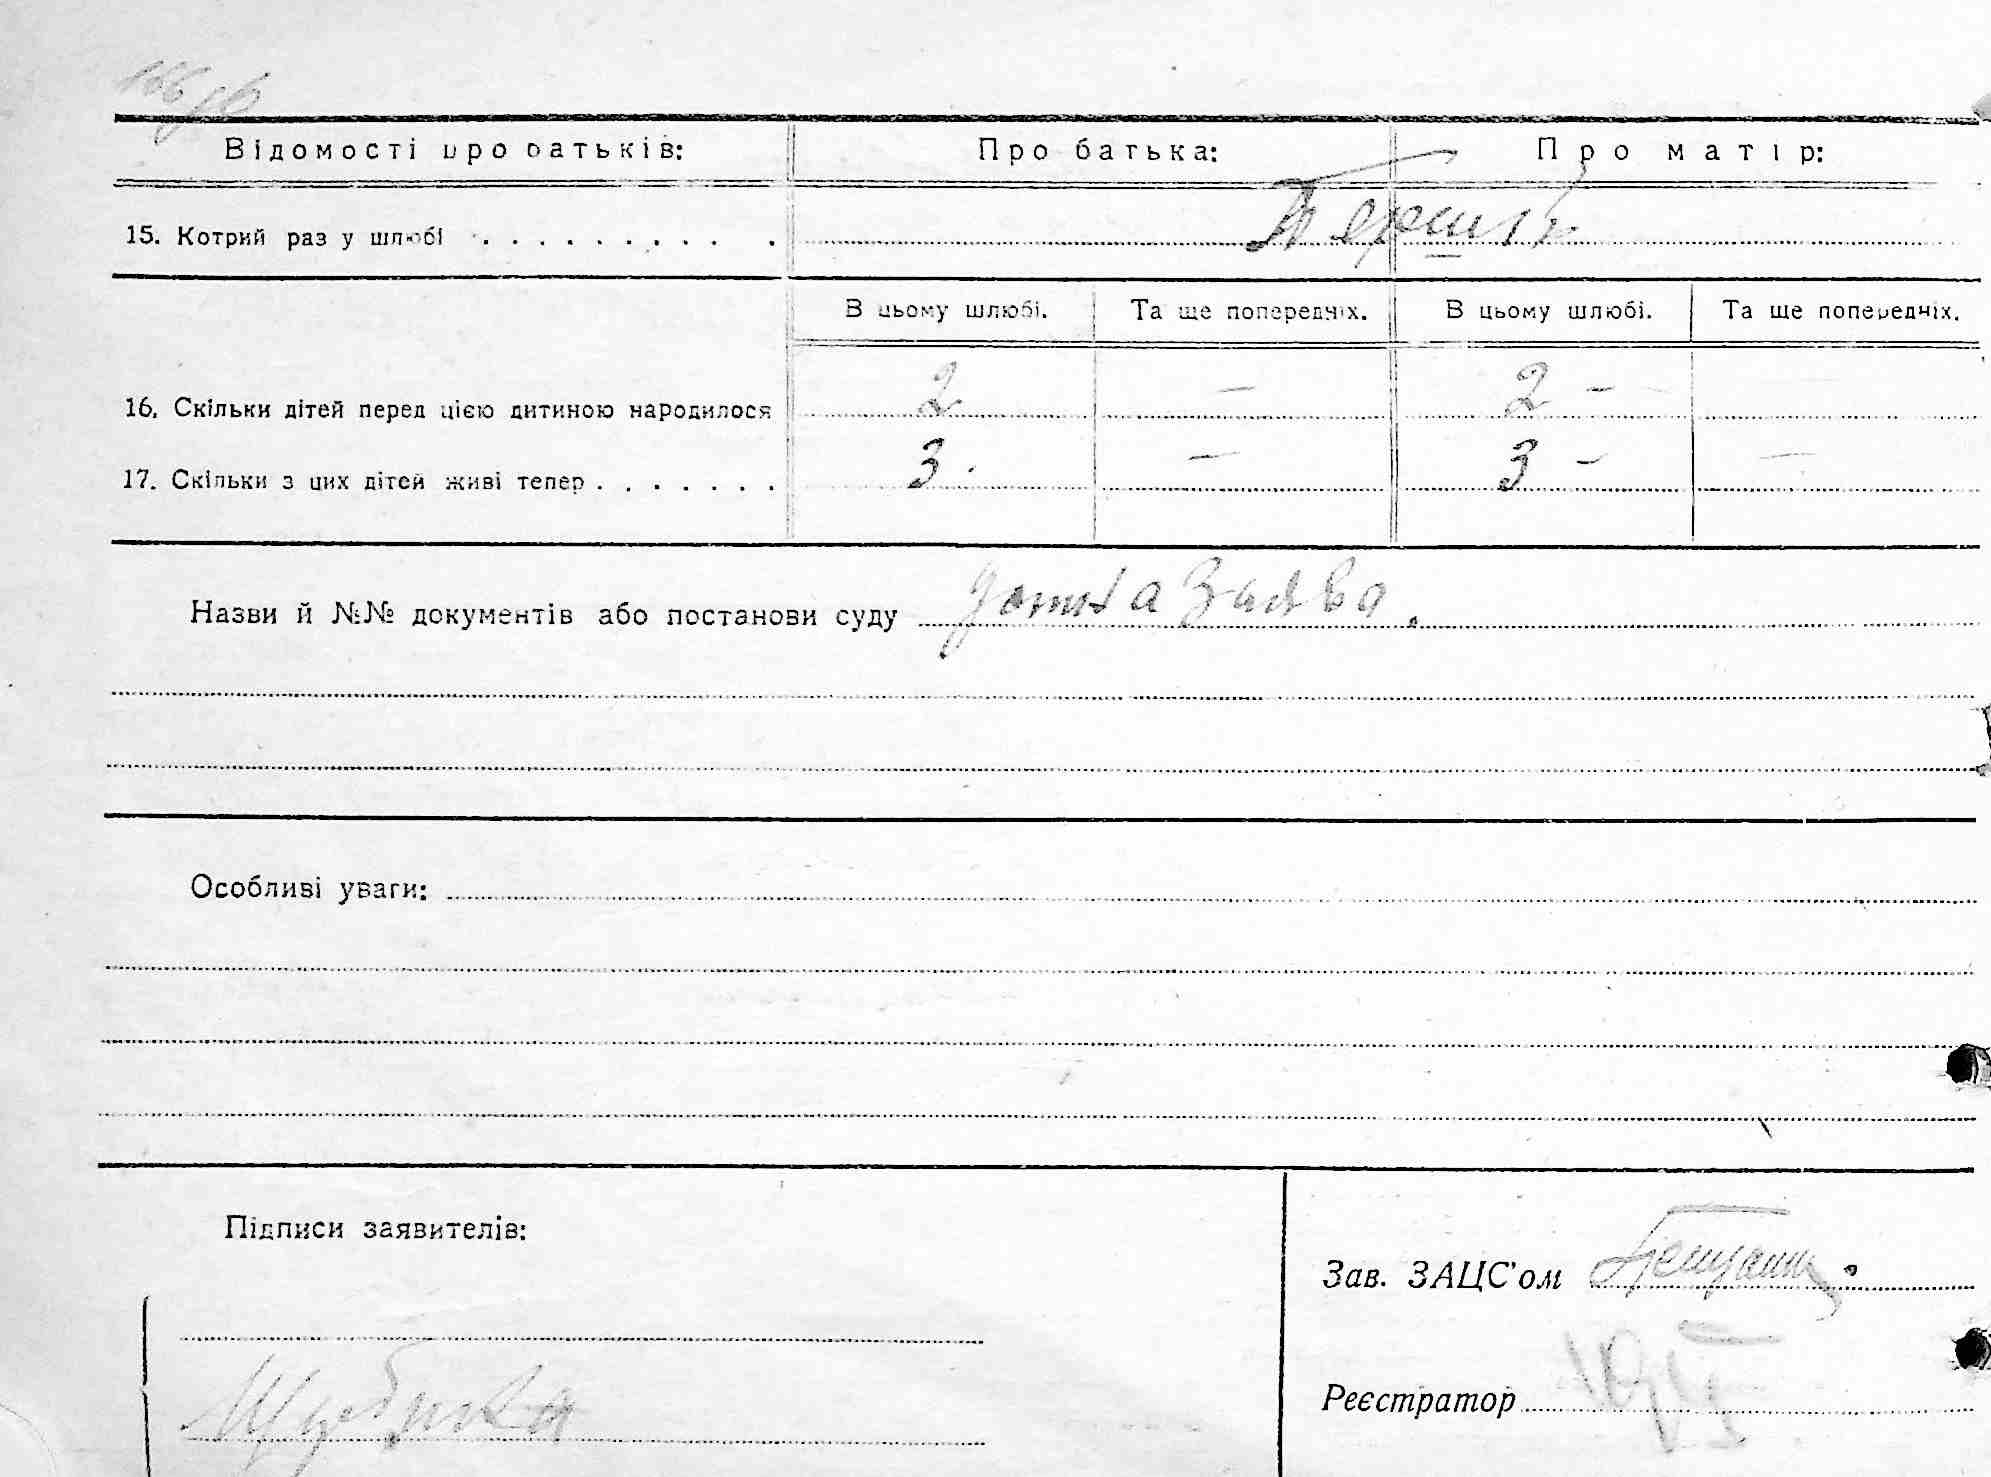 166 зв
Відомості про батьків: Про батька: Про матір:
15. Котрий раз у шлюбі . . . . . . . . . . Перший
В цьому шлюбі. Та ще попередніх. В цьому шлюбі. Та ще попередніх.
16. Скільки дітей перед цією дитиною народилося 2 — 2 —
17. Скільки з цих дітей живі тепер . . . . . . . 3 — 3 — —
Назви й №№ документів або постанови суду Устна Заява.
Особливі уваги:
Підписи заявителів:
Зав. ЗАЦС'ом
Реєстратор